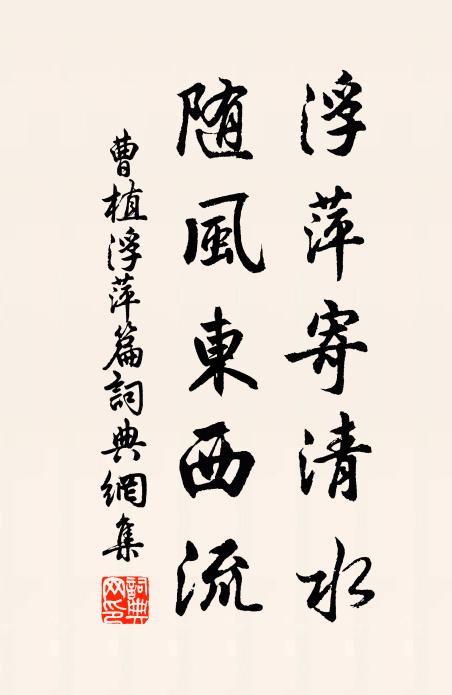 浮萍寄清水
随風東西流
曹植浮萍篇詞典網集
詞典網印